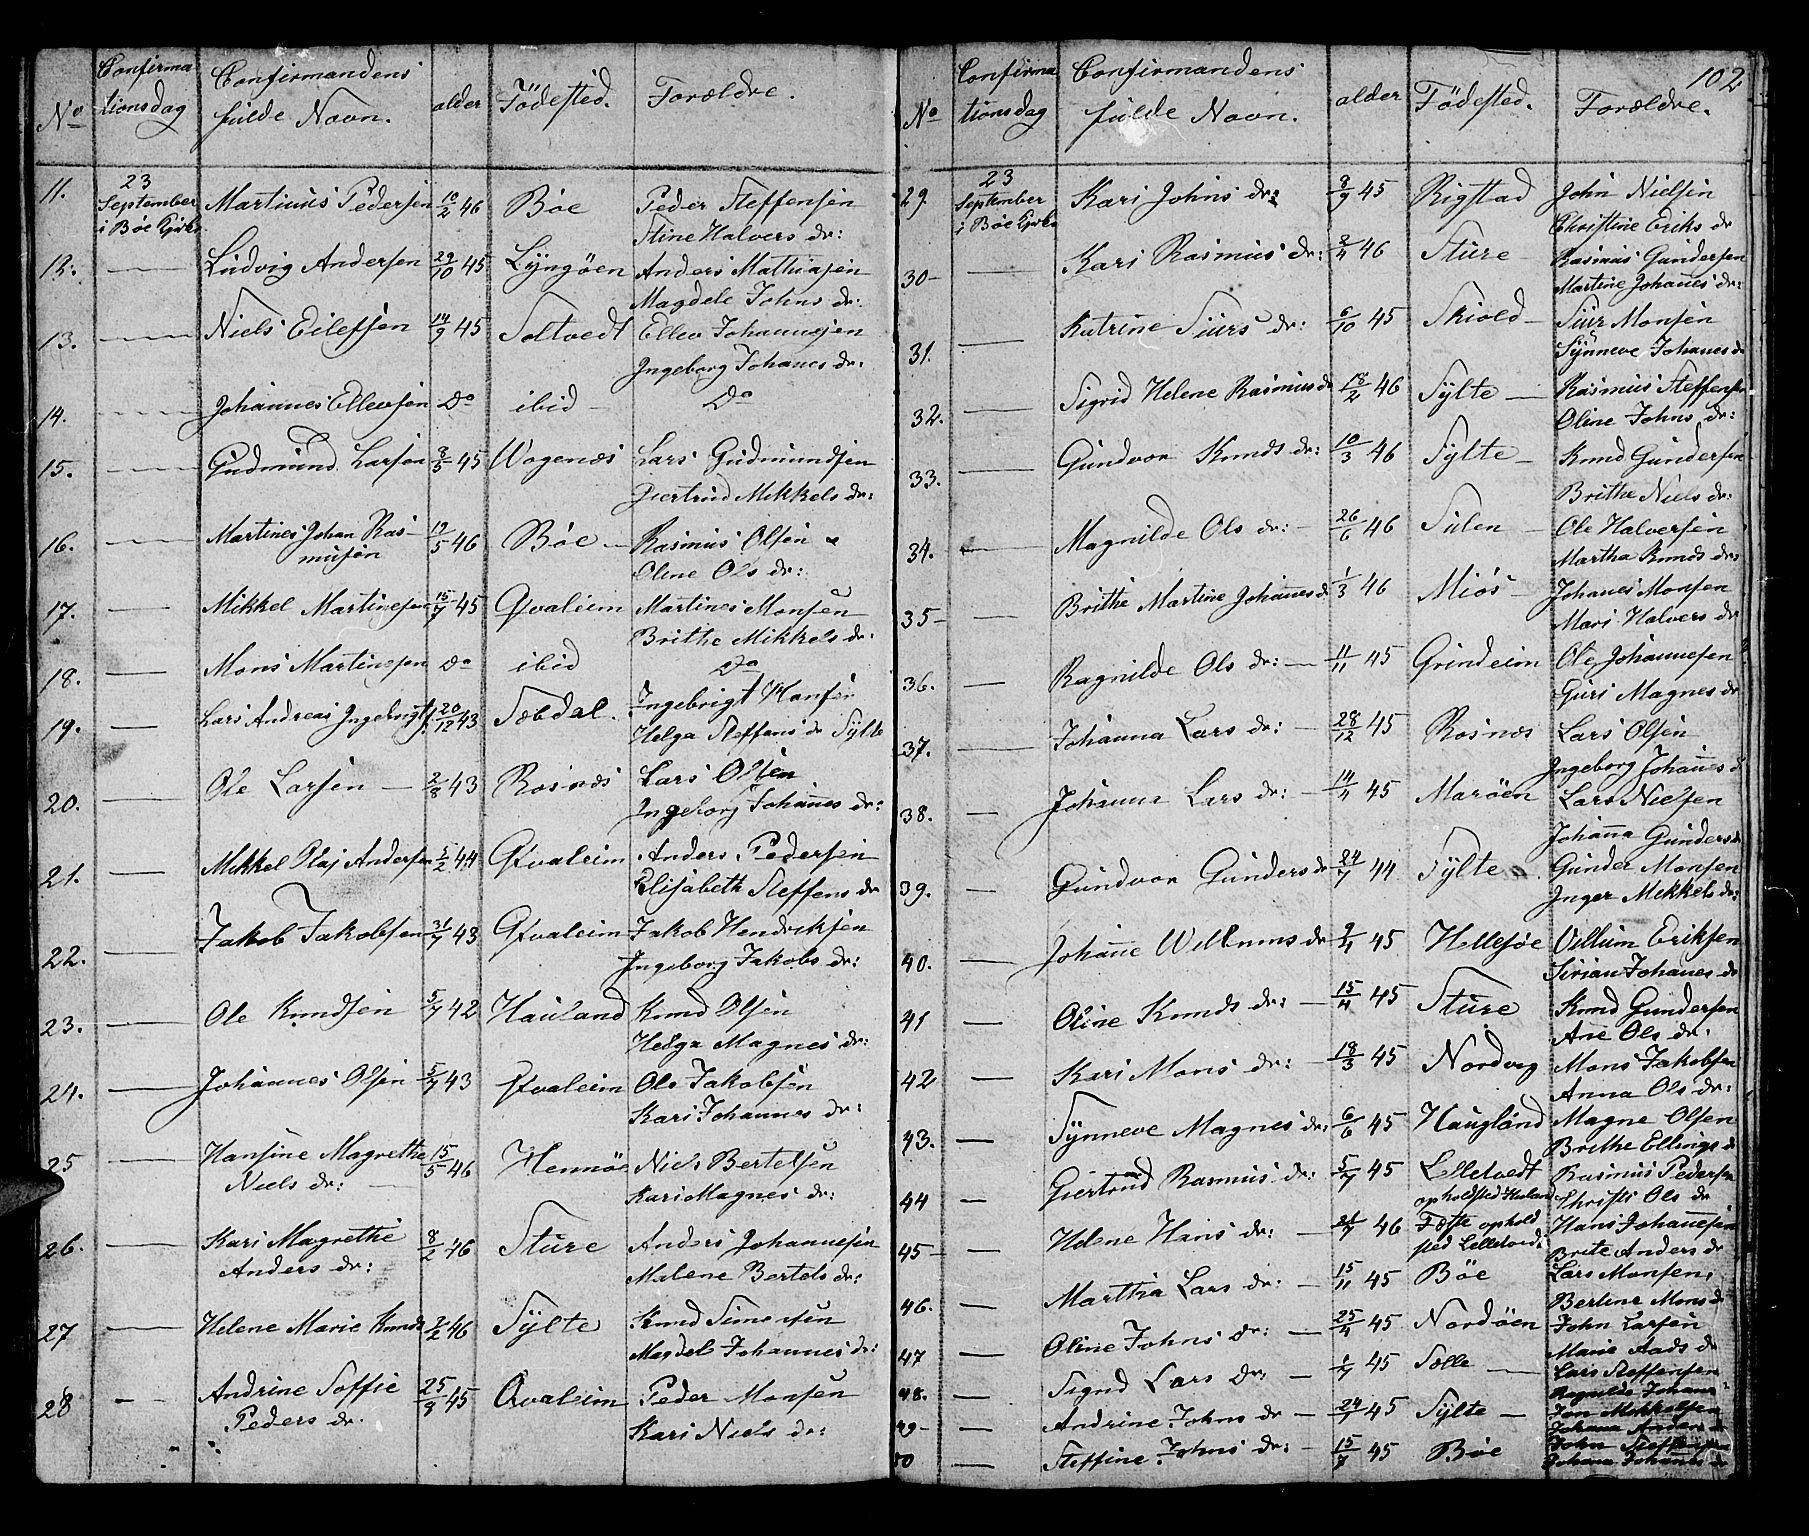 No
Confirma
tionsdag
Confirmandens
fulde Navn.
alder
Fødested.
Forældre.
11.
23
September
i Bøe Kirke
Martinus Pedersen
10/2 46
Bøe
Peder Steffensen
Stine Halvers dr:
12.
Ludvig Andersen
29/10 45
Lyngøen
Anders Mathiasen
Magdele Johns dr:
13.
Niels Ellefsen
14/9 45
Soltvedt
Ellev Johannesen
Ingeborg Johanes dr:
14.
Johannes Ellevsen
Do
ibid
Do
15.
Gudmund Larsen
8/5 45
Wogenæs
Lars Gudmundsen
Giertrud Mikkels dr:
16.
Martines Johan Ras-
musen
19/5 46
Bøe
Rasmus Olsen
Oline Ols dr:
17.
Mikkel Martinesen
15/7 45
Qvaleim
Martines Monsen
Brithe Mikkels dr:
18.
Mons Martinesen
Do
ibid
Do
19.
Lars Andreas Ingebrigts.
20/12 43
Sæbdal.
Ingebrigt Hansen
Helga Steffens dr Sylte
20.
Ole Larsen
2/8 43
Rosnæs
Lars Olsen
Ingeborg Johanes dr:
21.
Mikkel Olaj Andersen
5/2 44
Qvaleim
Anders Pedersen
Elisabeth Steffens dr
22.
Jakob Jakobsen
31/7 43
Qvaleim
Jakob Hendriksen
Ingeborg Jakobs dr:
23.
Ole Knudsen
5/7 42
Hauland
Knud Olsen
Helga Magnes dr:
24.
Johannes Olsen
5/7 43
Qvaleim
Ole Jakobsen
Kari Johannes dr:
25
Hansine Magrethe
Niels dr:
15/5 46
Hennøe
Niels Bertelsen
Kari Magnes dr:
26.
Kari Magrethe
Anders dr:
8/2 46
Sture
Anders Johannesen
Malene Bertels dr:
27
Helene Marie Knuds
2/2 46
Sylte
Knud Simensen
Magdel Johannes dr:
28
Andrine Soffie
Peders dr.
25/9 45
Qvaleim
Peder Monsen
Kari Niels dr:
102
No
Confirma
tionsdag
Confirmandens
fulde Navn.
alder
Fødested.
Forældre.
29.
23
September
i Bøe Kirke
Kari Johns dr:
8/9 45
Rigstad
John Nielsen
Christine Eriks dr
30
Kari Rasmus dr:
2/4 46
Sture
Rasmus Gundersen
Martine Johanes dr:
31.
Katrine Siurs dr:
6/10 45
Skiold
Siur Monsen
Synneve Johanes dr
32.
Sigrid Helene Rasmus dr
18/2 46
Sylte
Rasmus Steffensen
Oline Johns dr:
33.
Gundvor Knuds dr:
10/3 46
Sylte
Knud Gundersen
Brithe Niels dr:
34.
Magnilde Ols dr:
26/6 46
Sulen
Ole Halversen
Martha Knuds dr:
35
Brithe Martine Johanes d
1/3 46
Miøs
Johanes Monsen
Mari Halvers dr
36.
Ragnilde Ols dr:
11/11 45
Grindeim
Ole Johannesen
Guri Magnes dr
37.
Johanna Lars dr:
28/12 45
Rosnæs
Lars Olsen
Ingeborg Johanes d
38.
Johanna Lars dr:
14/11 45
Marøen
Lars Nielsen
Johanna Gunders dr
39.
Gundvor Gunders dr
24/7 44
Sylte
Gunder Monsen
Inger Mikkels dr:
40.
Johanne Willums dr
9/4 45
Hellesøe
Villum Eriksen
Sirian Johanes dr
41
Oline Knuds dr:
15/4 45
Sture
Knud Gundersen
Ane Ols dr:
42
Kari Mons dr:
18/3 45
Nordvig
Mons Jakobsen
Anna Ols dr:
43.
Synneve Magnes dr:
6/6 45
Haugland
Magne Olsen
Brithe Ellings dr
44
Giertrud Rasmus dr:
5/7 45
Lelletvedt
opholdsted Hauland
Rasmus Pedersen
Christi Ols dr
45
Helene Hans dr:
46
Fætte ophold
sted Lelletvedt
Hans Johannesen
Brite Anders dr
46.
Martha Lars dr:
15/11 45
Bøe
Lars Monsen
Berline Mons dr
47
Oline Johns dr:
25/4 45
Nordøen
John Larsen
Marie Aads dr
48.
Sigrid Lars dr:
45
Sælle
Lars Steffensen
Ragnilde Johans
49
Andrine Johns dr
24/7 45
Sylte
Jon Mikkelsen
Johana Anders dr
50
Steffine Johns dr:
15/7 45
Bøe
John Steffensen
Johana Johanes dr